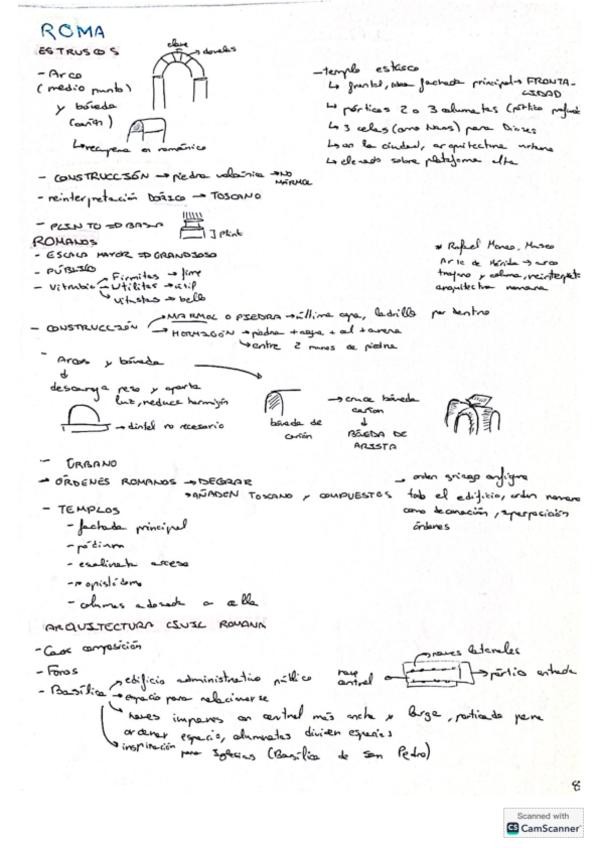 ROMA
ESTRUSCOS
clave
dovelas
- Arco
(medio punto)
y bóveda
(cañón)
↳ recupera en románico
- templo etrusco
↳ frontal, fachada principal → FRONTALIDAD
↳ pórticos 2 o 3 columnatas (pórtico profundo
↳ 3 celas (como naos) para Dioses
↳ en la ciudad, arquitectura urbana
↳ elevado sobre plataforma alta
- CONSTRUCCIÓN → piedra volcánica → NO MÁRMOL
- reinterpretación DÓRICO → TOSCANO
- PLINTO ⇒ BASA
] Plint
ROMANOS
- ESCALA MAYOR ⇒ GRANDIOSO
- PÚBLICO
- Vitrubio
Firmitas → firme
Utilitas → útil
Vitustas → bello
* Rafael Moneo. Museo
Arte de Mérida → arco
y columna, reinterpreta
arquitectura romana
- CONSTRUCCIÓN
MARMOL O PIEDRA → última capa, ladrillo por dentro
HORMIGÓN → piedra + agua + cal + arena
↳ entre 2 muros de piedra
- Arcos y bóveda
descarga peso y aporta
luz, reduce hormigón
→ dintel no necesario
bóveda de
cañón
→ cruce bóveda
cañon
BÓVEDA DE
ARISTA
- URBANO
→ ÓRDENES ROMANOS → DEGRAR
→ AÑADEN TOSCANO y COMPUESTOS
→ orden griego configura
todo el edificio, orden romano
como decoración, superposición
órdenes
- TEMPLOS
- fachada principal
- pódium
- escalinata acceso
- opistódomo
- columnas adosada a cella
ARQUITECTURA CIVIL ROMANA
- Casas composición
- Foros
- Basílica
edificio administrativo público
espacio para relacionarse
naves impares con central más ancha y larga, porticada para
ordenar espacio, columnatas dividen espacios
inspiración para Iglesias (Basílica de San Pedro)
naves laterales
nave
central
→ pórtico entrada
8
Scanned with
CS CamScanner